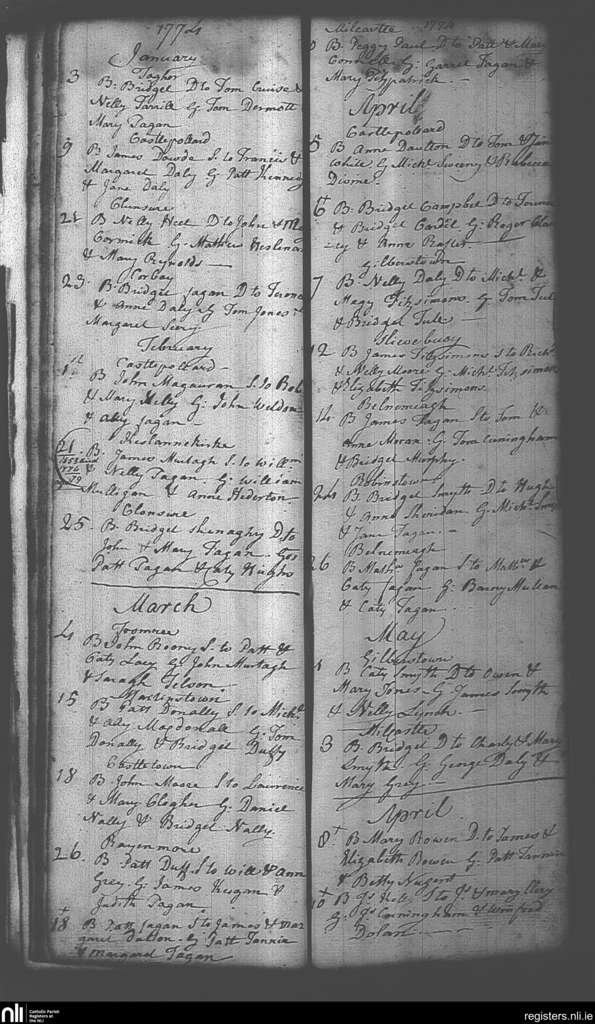 1774
January
Taghor
3 B. Bridget D to Tom Cruise &
Nelly Farrill G Tom Dermott
Mary Fagan
Castlepollard
9 B James Dowde S. to Francis &
Margaret Daly G Patt Kennedy
& Jane Daly
Clonsure
21 B Nelly Heel D to John &
Cormick G. Mathew
& Mary Reynolds
Corbay
23. B. Bridget Fagan D to
& Anne Daly G Tom Jones
Margaret
February
Castlepollard
1st B John Magauran S. to Rob
& Mary Kelly G: John Weldon
& Ally Fagan
21 B. James Murtagh S. to Willm
& Nelly Fagan. G. William
Mulligan & Anne Hederton
Clonsure
25 B Bridget Shenaghy D to
John & Mary Fagan Gos
Patt Fagan & Caty Hughs
March
4 B John Roony S. to Patt &
Caty Lacy G John Murtagh
& Saragh
Martinstown
15 B Patt Donally S to Micht
& Ally Magdonall G: Tom
Donally & Bridget Duffy
Castletown
18 B. John Moore S to Lawrence
& Mary Clogher G: Daniel
Nally & Bridget Nally
Rayenmore
26. B Patt Duff S to Will & Ann
Grey. G: James Keegan &
Judith Fagan
18 B Patt Fagan S to James & Mar
garet Dalton. G Patt Fannin
& Margaret Fagan
Milcastle 1774
B. Peggy Paul D to Patt & Mary
G: Garret Fagan &
Mary Fitzpatrick.
April
Castlepollard
5 B Anne Daulton D to Tom &
G Micht Sweeny & Rebecca
Divine
6t B. Bridget Campbel D to
& Bridget G: Roger
& Anne
Gilberstown
7 B. Nelly Daly D to Micht &
Magy Fitzsimons G Tom Tule
& Bridget Tule
Slievebuoy
12 B James Fitzsimons S to Richd
& Nelly Moore G: Micht Fitzsimons
& Elizabeth Fitzsimons
Belnemeagh
14 B James Fagan S to Tom &
Anne Moran. G Tom Cuningham
& Bridget Murphy.
24 B. Bridget Smyth D to Hugh
& Anne Sheridan G. Micht Smyth
& Jane Fagan
Belnemeagh
26 B Mathw Fagan S to Mathw &
Caty Fagan G: Barny
& Caty Fagan
May
Gilberstown
1 B Caty Smyth D to Owen &
Mary Jones G James Smyth
& Nelly Lynch.
Milcastle
3 B. Bridget D to Charly & Mary
Smyth G George Daly &
Mary Grey
April
8t B Mary Bowen D. to James &
Elizabeth Bowen G Patt Fannin
& Betty Nugent
10t B Js S to Js & Mary
G: Js Cuningham & Winifred
Dolan
nli
Catholic Parish
Registers at
the NLI
registers.nli.ie